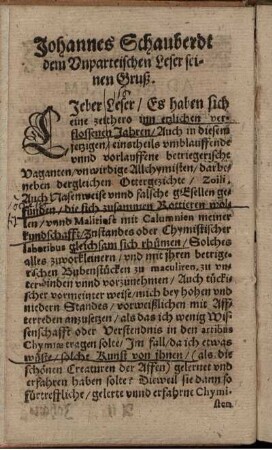 Johannes Schauberdt
dem Vnparteischen Leser sei-
nen Gruß.
LJeber Leser / Es haben sich
eine zeithero inn etlichen ver-
flossenen Jahren / Auch in diesem
jetzigen / einstheils vmblauffende
vnnd vorlauffene betriegerische
Vaganten / vnwirdige Allchymisten / darbe-
neben dergleichen Ottergezichte / Zoili,
Auch Nasenweise vnnd falsche gesellen ge-
funden / die sich zusammen Rottieren wol-
len / vnnd Malitiosè mit Calumnien meiner
kundschafft / Jnstandes oder Chymistischer
laboribus gleichsam sich rhümen / Solches
alles zuvorkleinern / vnd mit jhren betrige-
rischen Bubenstücken zu maculiren, zu vn-
terwinden vnnd vorzunehmen / Auch tücki-
scher vormeinter weise / mich bey hohen vnd
niedern Standes / vorweißlichen mit Aff-
terreden anzusetzen / als das ich wenig Wis-
senschafft oder Verstendnis in den artibus
Chymiæ tragen solte / Jm fall / da ich etwas
wüste / solche Kunst von jhnen / (als die
schönen Creaturen der Affen) gelernet vnd
erfahren haben solte: Dieweil sie dann so
fürtreffliche / gelerte vnnd erfahrne Chymi-
sten